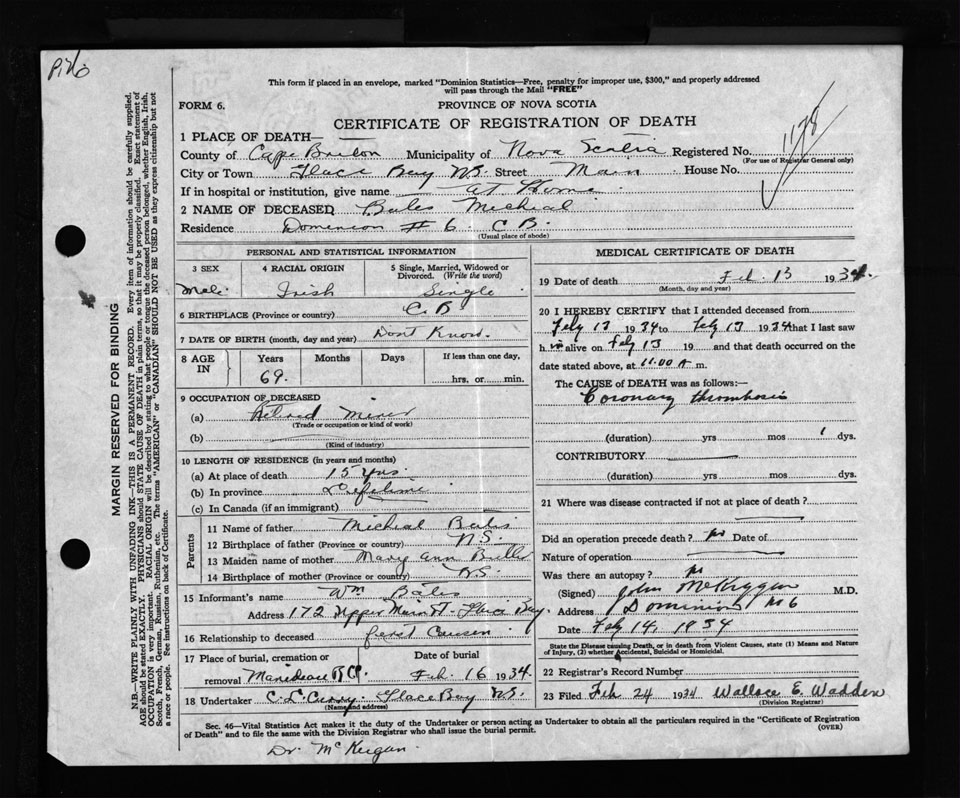 This form if placed in an envelope, marked "Dominion Statistics—Free, penalty for improper use, $300," and properly addressed
will pass through the Mail "FREE"
FORM 6. PROVINCE OF NOVA SCOTIA
CERTIFICATE OF REGISTRATION OF DEATH
1 PLACE OF DEATH—
County of Cape Breton Municipality of Nova Scotia Registered No.
(For use of Registrar General only)
City or Town Glace Bay NS. Street Main House No.
If in hospital or institution, give name at Home
2 NAME OF DECEASED Bates Micheal
Residence Dominion # 6 C B.
(Usual place of abode)
PERSONAL AND STATISTICAL INFORMATION
3 SEX 4 RACIAL ORIGIN 5 Single, Married, Widowed or Divorced. (Write the word)
Male Irish Single
6 BIRTHPLACE (Province or country) C. B
7 DATE OF BIRTH (month, day and year) Dont Know.
8 AGE IN Years Months Days If less than one day,
69. hrs. or min.
9 OCCUPATION OF DECEASED
(a) Retired Miner
(Trade or occupation or kind of work)
(b)
(Kind of industry)
10 LENGTH OF RESIDENCE (in years and months)
(a) At place of death 15 Yrs.
(b) In province Lifetime
(c) In Canada (if an immigrant)
Parents
11 Name of father Micheal Bates
12 Birthplace of father (Province or country) N.S.
13 Maiden name of mother Mary Ann
14 Birthplace of mother (Province or country) N.S.
15 Informant's name Wm Bates
Address 172 Upper Main St. Glace Bay
16 Relationship to deceased first Causen
17 Place of burial, cremation or removal Date of burial
R C Feb. 16 1934.
18 Undertaker C. L. Curry Glace Bay N.S.
(Name and address)
MEDICAL CERTIFICATE OF DEATH
19 Date of death Feb. 13 1934.
(Month, day and year)
20 I HEREBY CERTIFY that I attended deceased from
Feby 13 1934 to Feby 13 1934 that I last saw
h im alive on Feby 13 19 and that death occurred on the
date stated above, at 11.00 A m.
The CAUSE of DEATH was as follows:—
Coronary thrombosis
(duration) yrs mos 1 dys.
CONTRIBUTORY
(duration) yrs mos dys.
21 Where was disease contracted if not at place of death?
Did an operation precede death? no Date of
Nature of operation
Was there an autopsy? no
(Signed) John McKiggan M.D.
Address Dominion No 6
Date Feby 14, 1934
State the Disease causing Death, or in death from Violent Causes, state (1) Means and Nature
of Injury, (2) whether Accidental, Suicidal or Homicidal.
22 Registrar's Record Number
23 Filed Feb 24 1934 Wallace E. Wadden
(Division Registrar)
Sec. 46—Vital Statistics Act makes it the duty of the Undertaker or person acting as Undertaker to obtain all the particulars required in the "Certificate of Registration
of Death" and to file the same with the Division Registrar who shall issue the burial permit. (OVER)
Dr. McKeigan
MARGIN RESERVED FOR BINDING
N.B.—WRITE PLAINLY WITH UNFADING INK—THIS IS A PERMANENT RECORD. Every item of information should be carefully supplied.
AGE should be stated EXACTLY. PHYSICIANS should STATE CAUSE OF DEATH in plain terms, so that it may be properly classified. Exact statement of
OCCUPATION is very important. RACIAL ORIGIN will be described by stating to what people or tongue the deceased person belonged, whether English, Irish,
Scotch, French, German, Russian, Ruthenian, etc. The terms "AMERICAN" or "CANADIAN" SHOULD NOT BE USED as they express citizenship but not
a race or people. See instructions on back of Certificate.